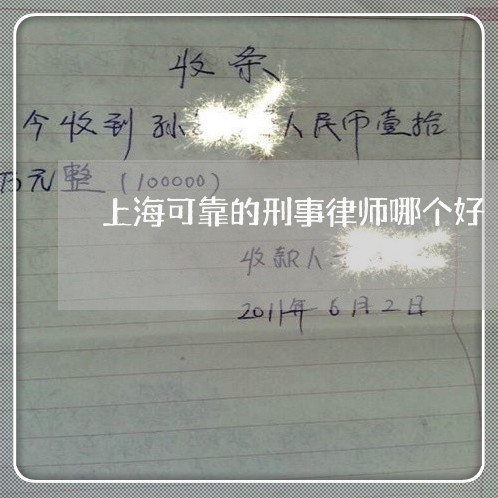 收条
今收到孙 人民币壹拾
万元整(100000)
上海可靠的刑事律师哪个好
收款人
2011年6月2日